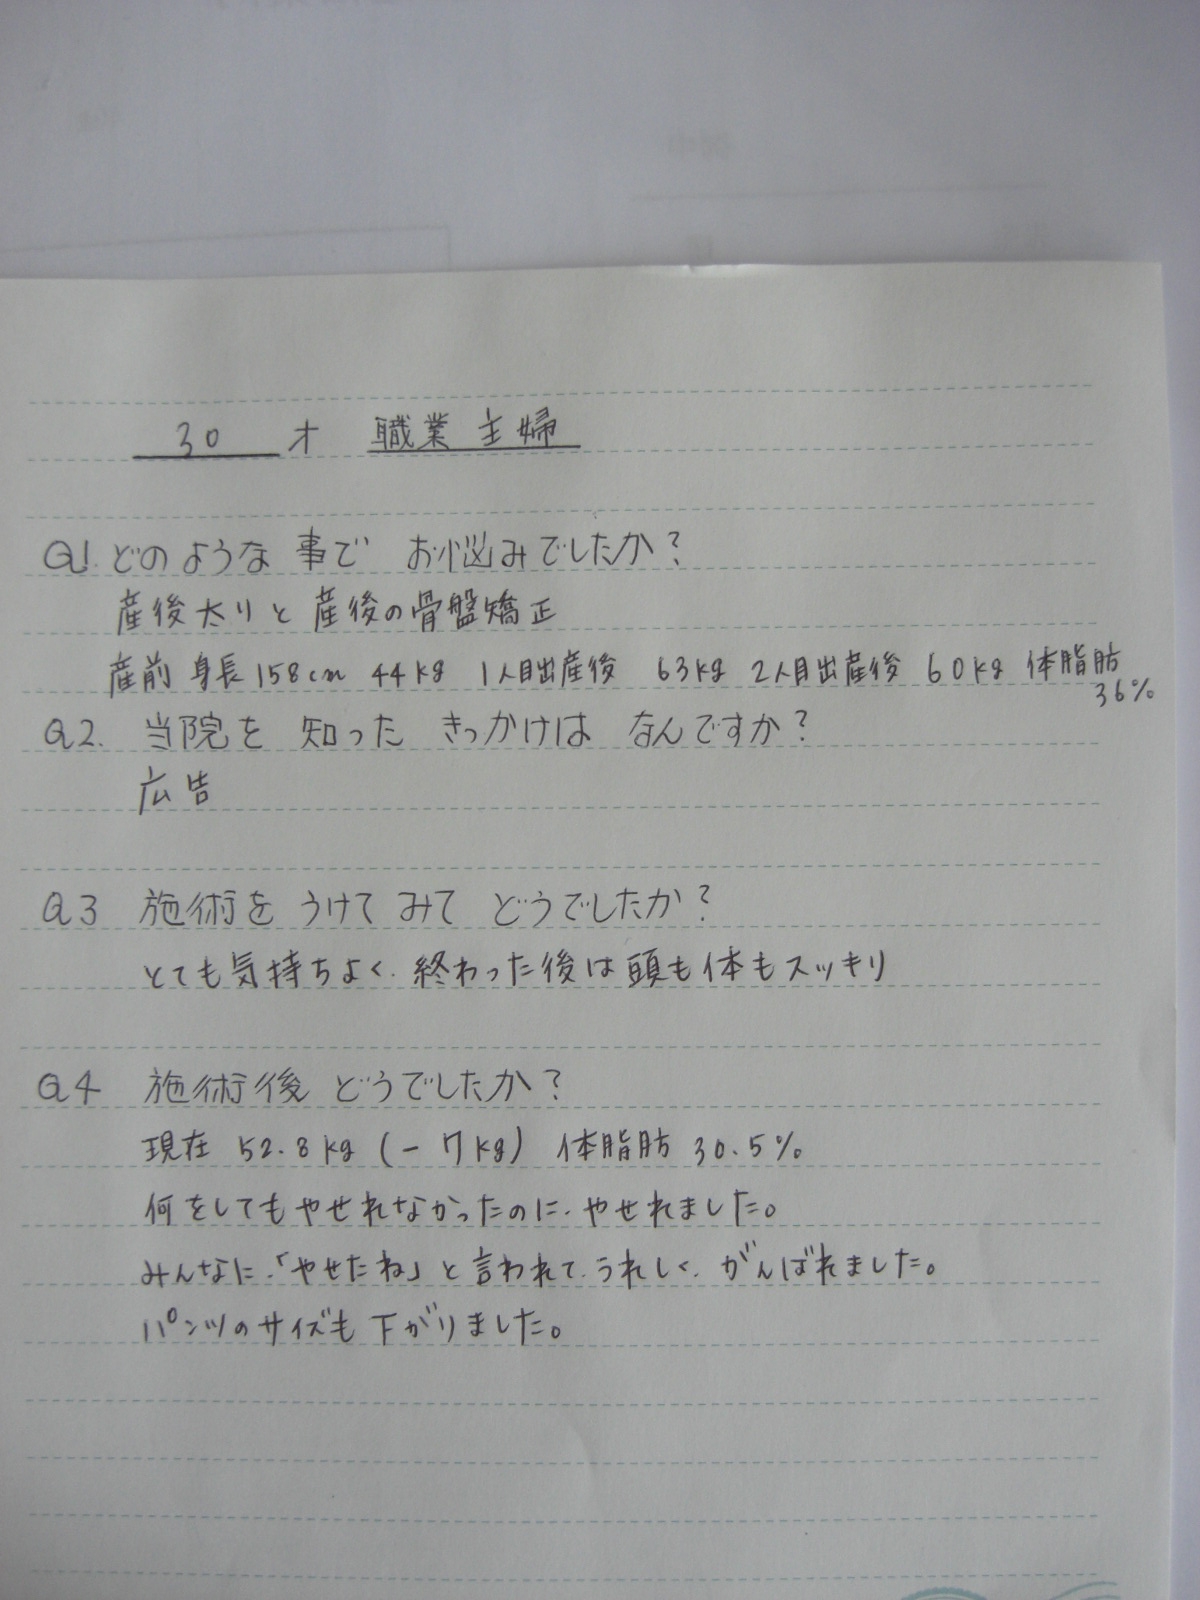 30 才 職業 主婦
Q1. どのような 事で お悩みでしたか?
産後太りと産後の骨盤矯正
産前 身長158cm 44kg 1人目出産後 63kg 2人目出産後 60kg 体脂肪
36%
Q2. 当院を 知った きっかけは なんですか?
広告
Q3 施術を うけて みて どうでしたか?
とても気持ちよく、終わった後は頭も体もスッキリ
Q4 施術後 どうでしたか?
現在 52.8kg (-7kg) 体脂肪 30.5%
何をしてもやせれなかったのに、やせれました。
みんなに、「やせたね」と言われて、うれしく、がんばれました。
パンツのサイズも下がりました。